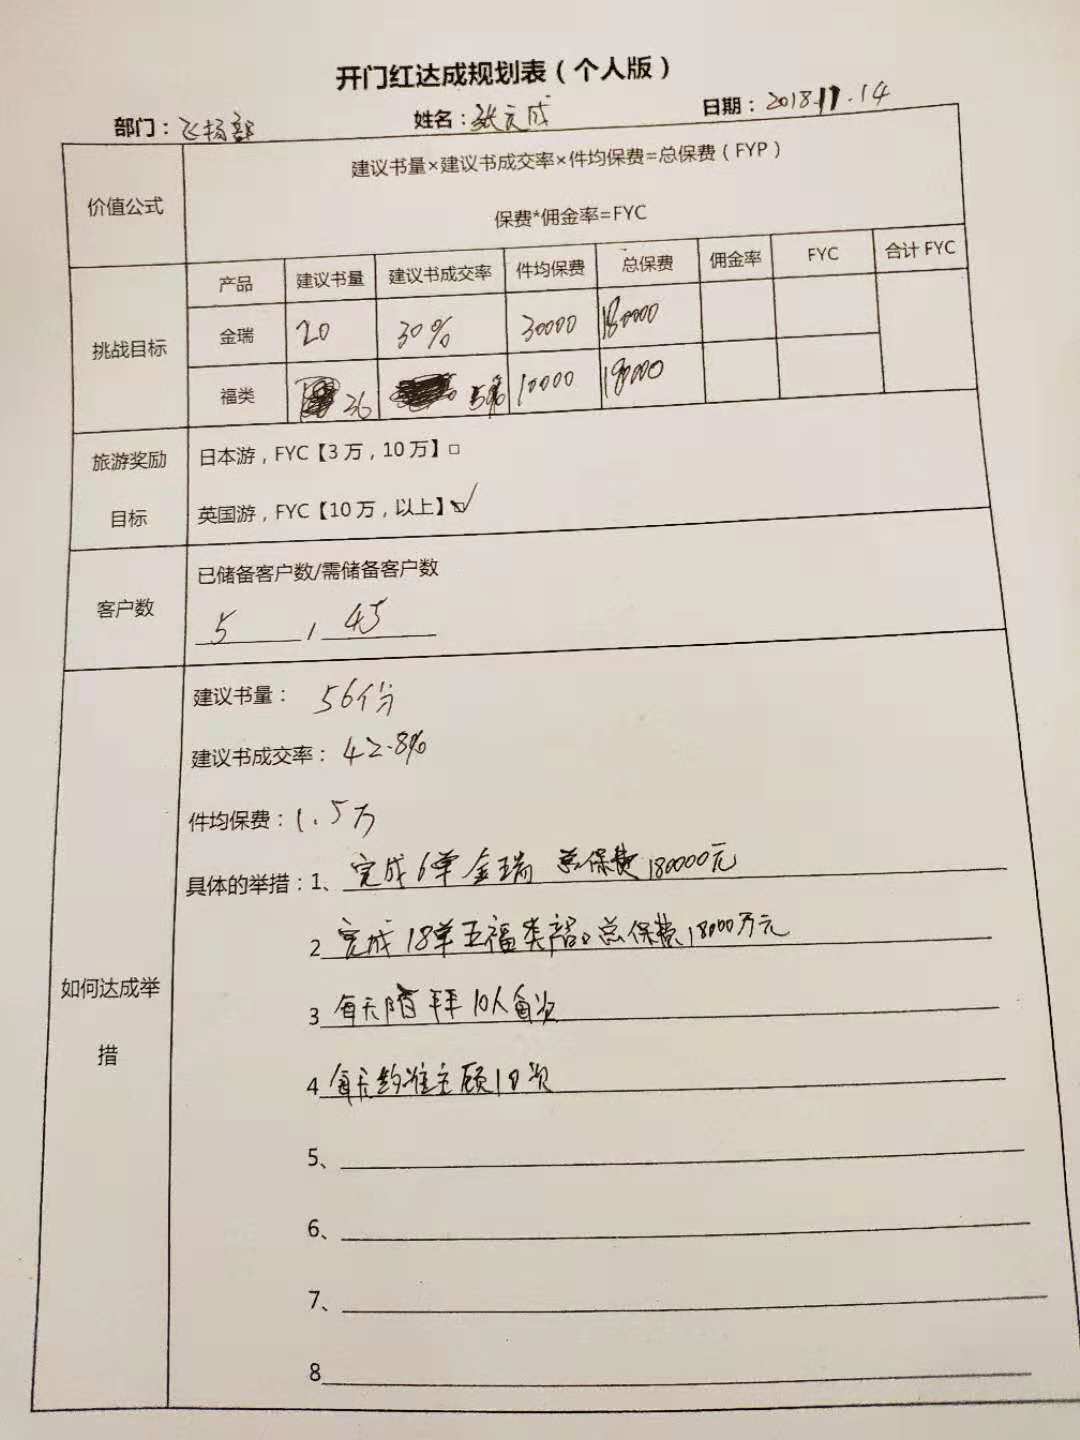 开门红达成规划表（个人版）
部门：飞扬部 姓名：张元成 日期：2018.11.14
价值公式
建议书量×建议书成交率×件均保费=总保费（FYP）
保费*佣金率=FYC
挑战目标
产品 建议书量 建议书成交率 件均保费 总保费 佣金率 FYC 合计 FYC
金瑞 20 30% 30000 180000
福类 36 5% 10000 180000
旅游奖励
目标
日本游，FYC【3万，10万】□
英国游，FYC【10万，以上】☑
客户数
已储备客户数/需储备客户数
5 / 45
如何达成举
措
建议书量：56份
建议书成交率：42.8%
件均保费：1.5万
具体的举措：1、完成6单金瑞 总保费180000元
2 完成18单五福类 总保费18000万元
3 每天陌拜10人每次
4 每天约准主顾10次
5、
6、
7、
8